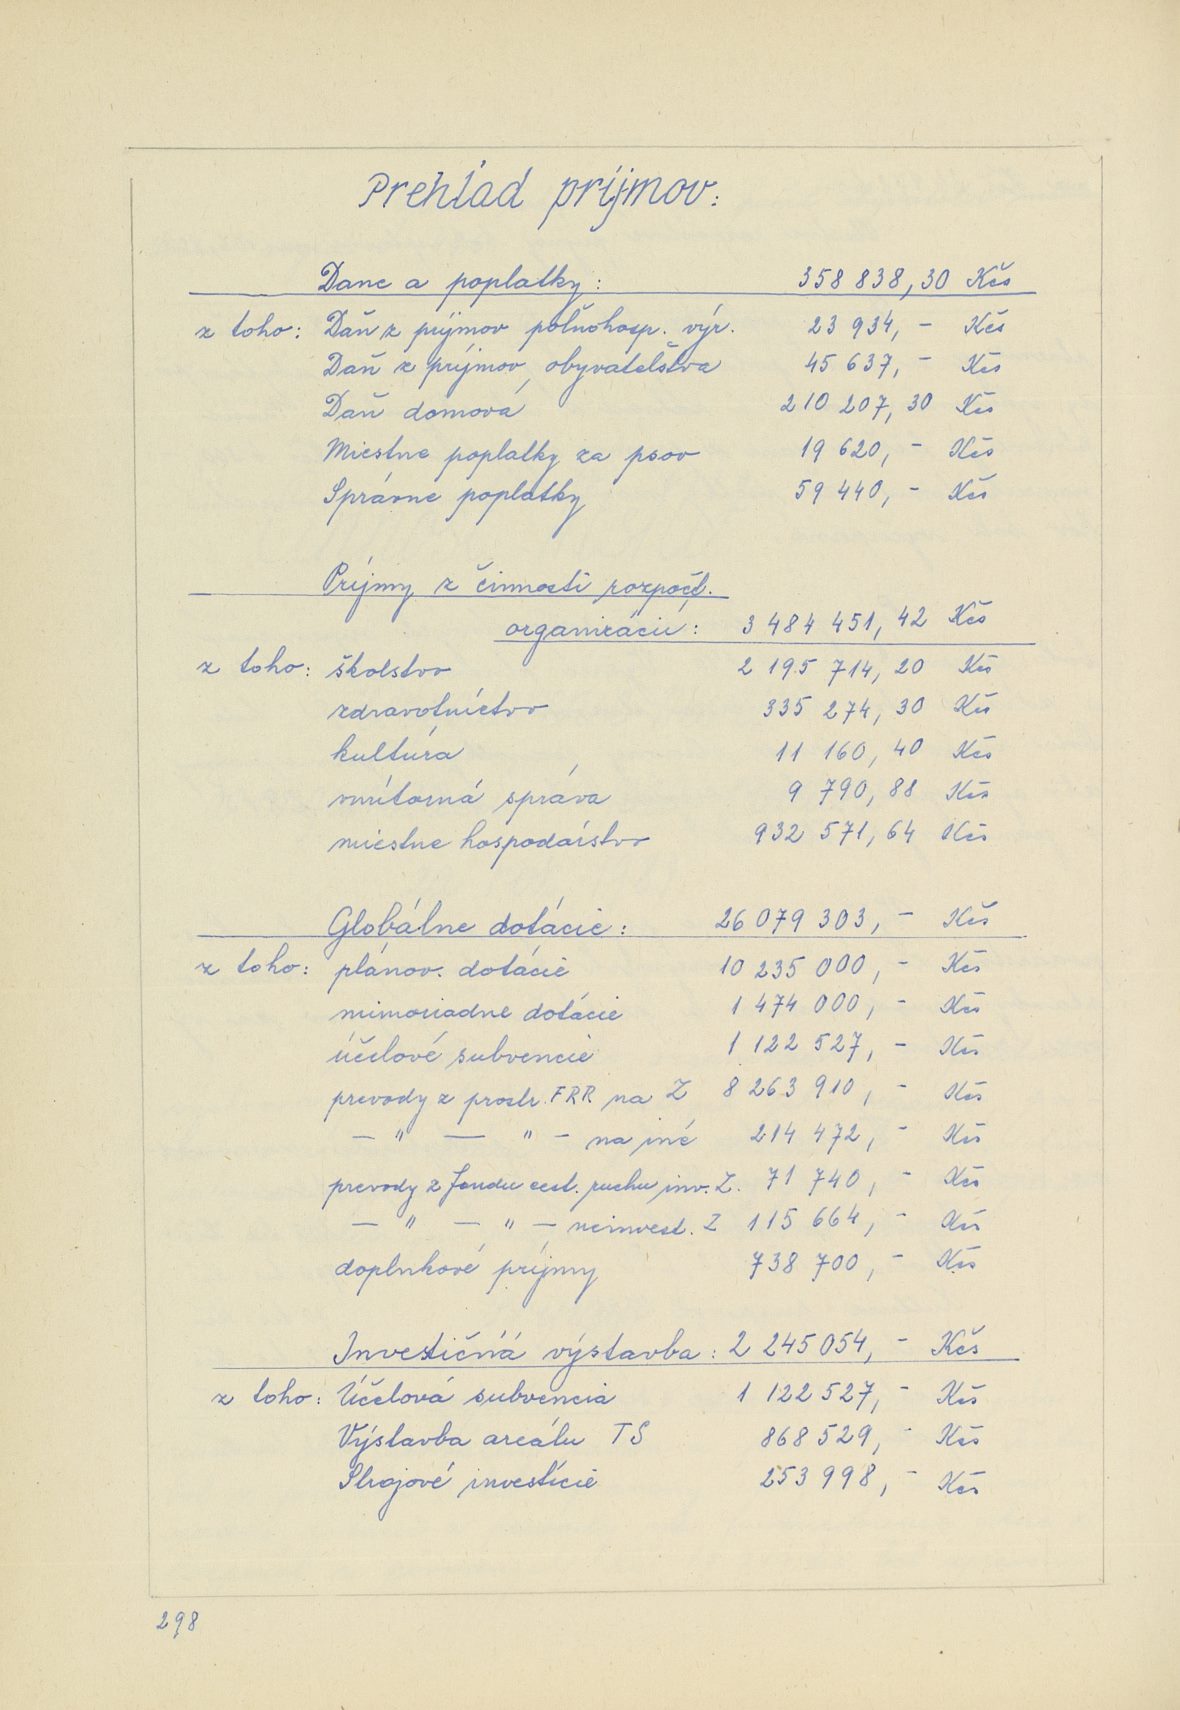 Prehľad príjmov:
Dane a poplatky: 358 838,30 Kčs
z toho: Daň z príjmov poľnohosp. výr. 23 934,- Kčs
Daň z príjmov obyvateľstva 45 637,- Kčs
Daň domová 210 207,30 Kčs
Miestne poplatky za psov 19 620,- Kčs
Správne poplatky 59 440,- Kčs
Príjmy z činnosti rozpočt.
organizácií: 3 484 451,42 Kčs
z toho: školstvo 2 195 714,20 Kčs
zdravotníctvo 335 274,30 Kčs
kultúra 11 160,40 Kčs
vnútorná správa 9 790,88 Kčs
miestne hospodárstvo 932 571,64 Kčs
Globálne dotácie: 26 079 303,- Kčs
z toho: plánov. dotácie 10 235 000,- Kčs
mimoriadne dotácie 1 474 000,- Kčs
účelové subvencie 1 122 527,- Kčs
prevody z prostr. FRR na Z 8 263 910,- Kčs
— " — " — na iné 214 472,- Kčs
prevody z fondu cest. ruchu inv. Z. 71 740,- Kčs
— " — " — neinvest. Z 115 664,- Kčs
doplnkové príjmy 738 700,- Kčs
Investičná výstavba: 2 245 054,- Kčs
z toho: Účelová subvencia 1 122 527,- Kčs
Výstavba areálu TS 868 529,- Kčs
Strojové investície 253 998,- Kčs
298